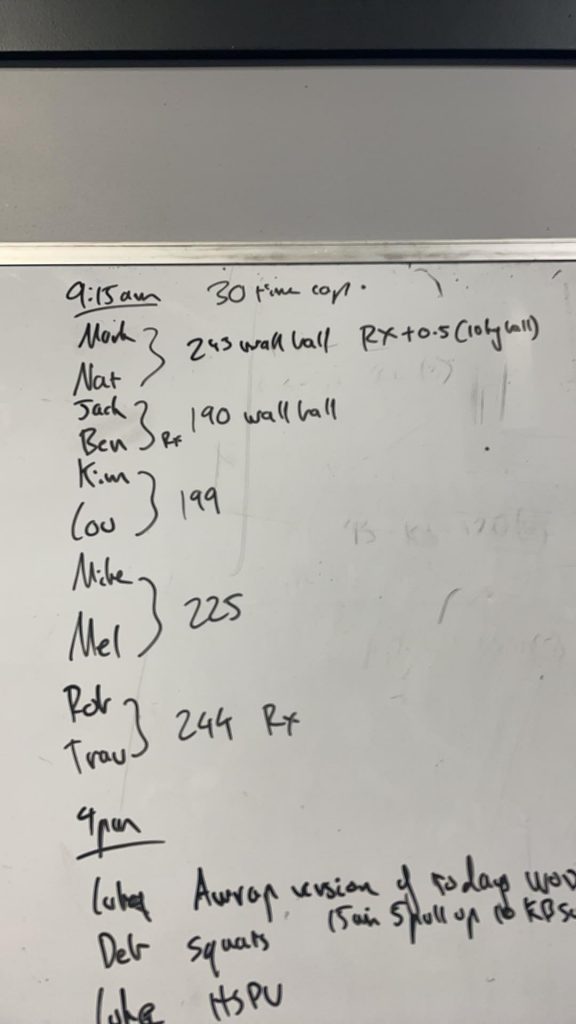 9:15am 30 time cap.
Mark
243 wall ball RX+0.5 (10kg ball)
Nat
Jack
190 wall ball
Ben Rx
Kim
199
Lou
Mike
225
Mel
Rob
244 Rx
Trav
4pm
Luke Amrap version of todays WOD
15min 5 pull up 10 KB
Deb Squats
Luke HSPU